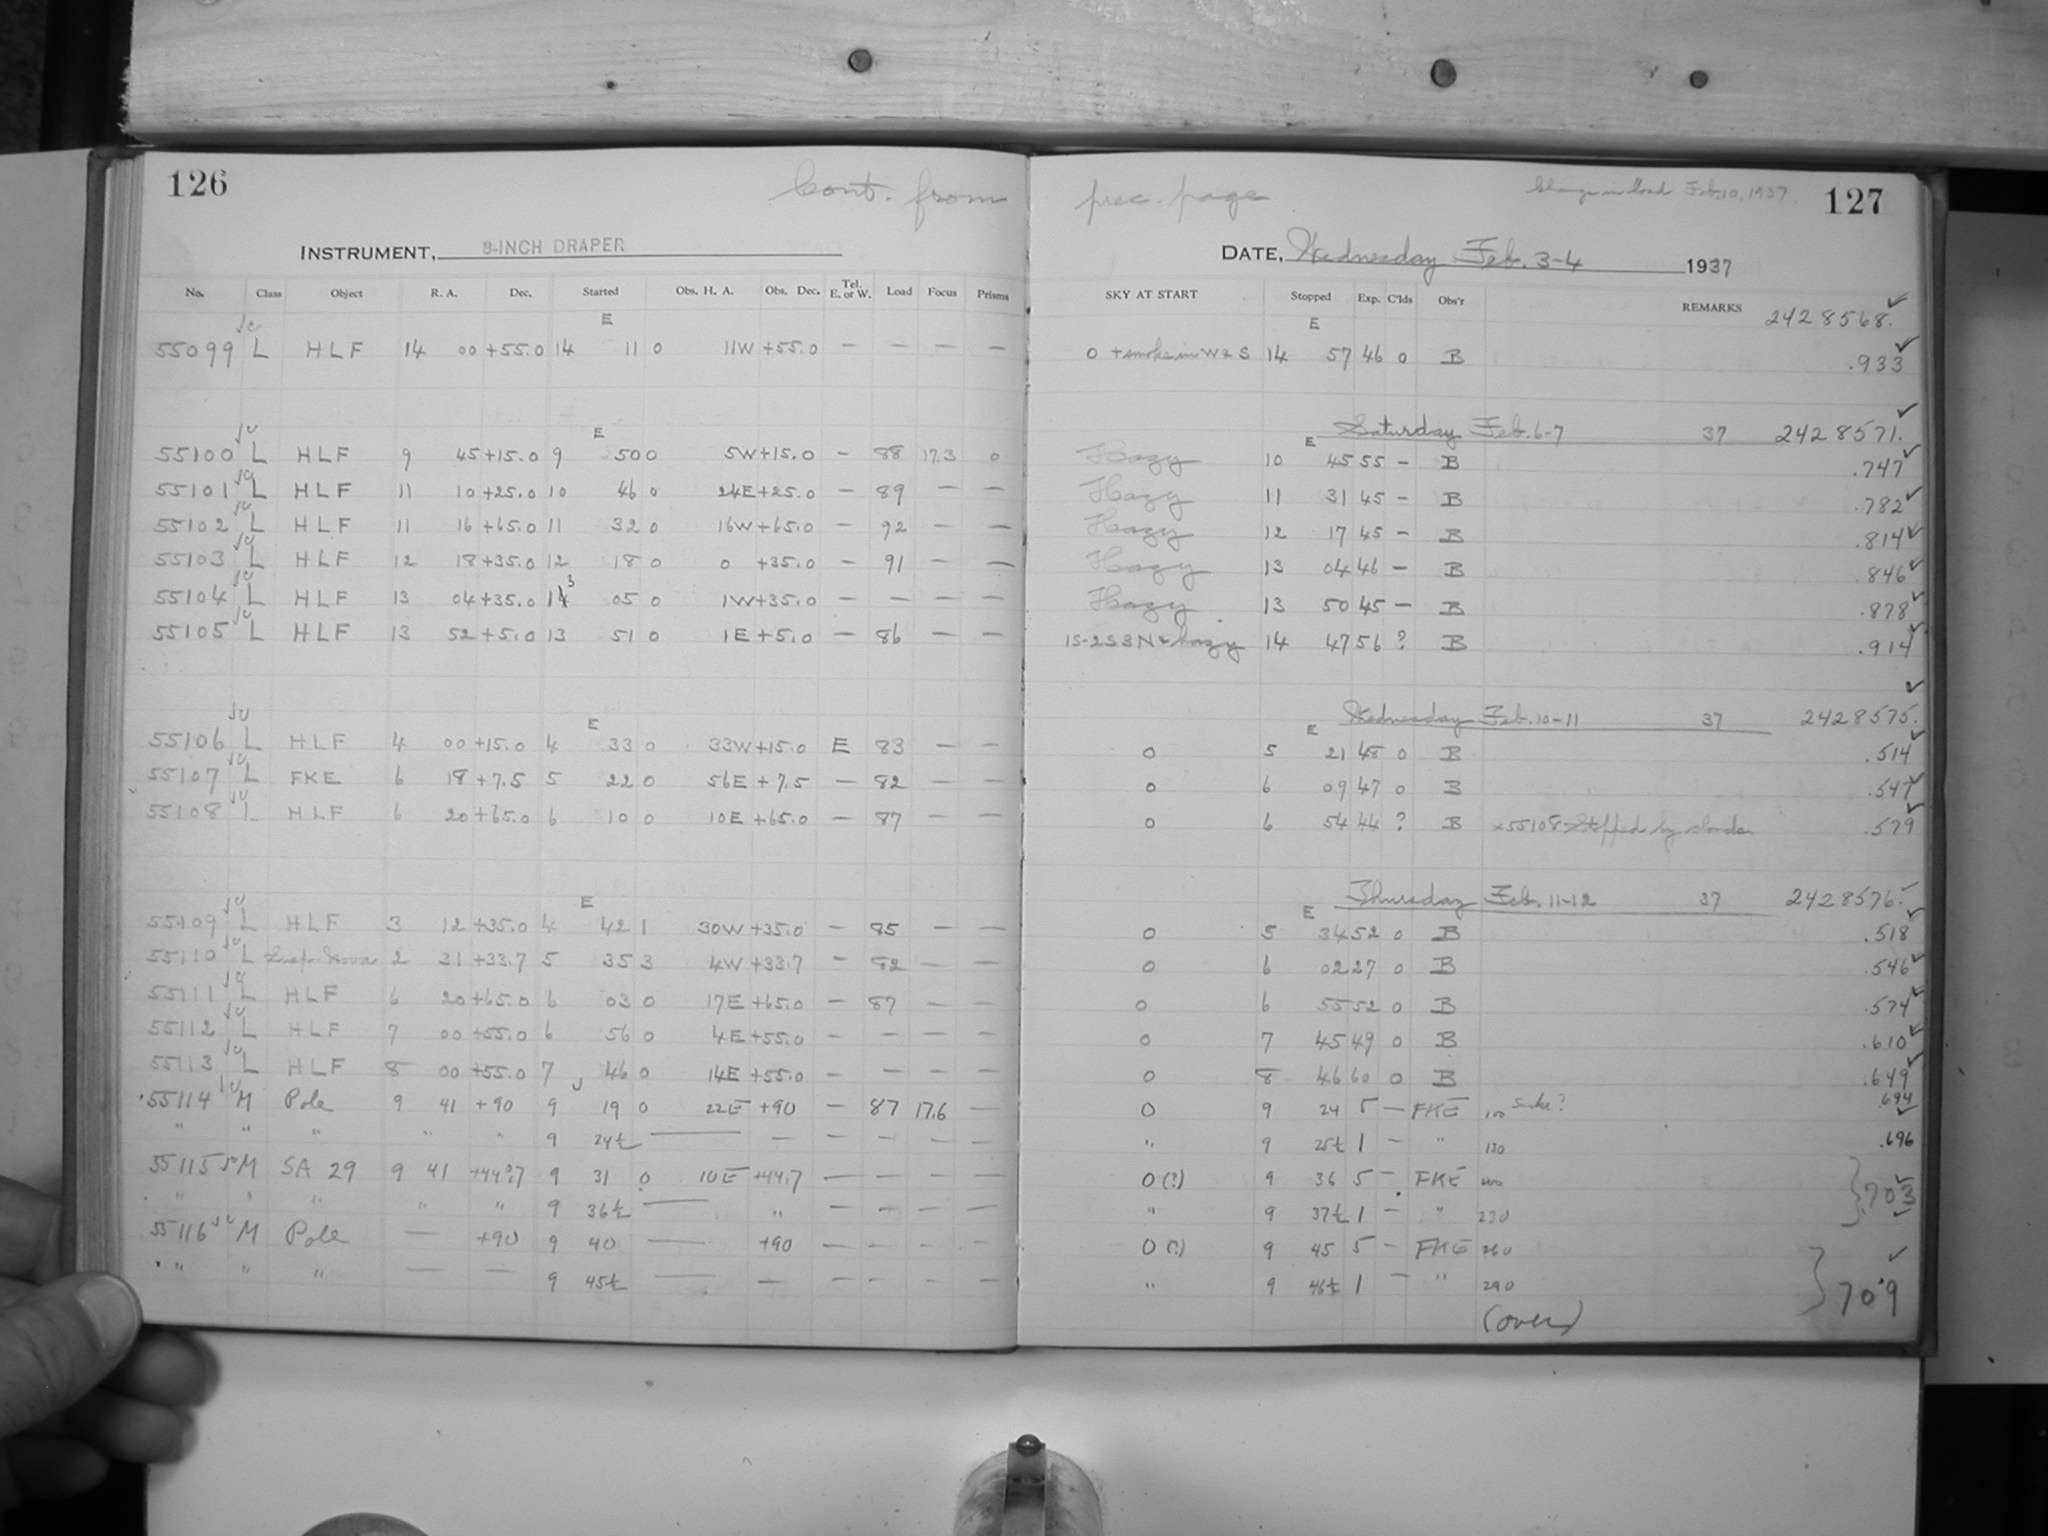 126
Cont. from
prec. page
Change in load Feb. 10, 1937.
127
INSTRUMENT, 8-INCH DRAPER
DATE, Wednesday Feb. 3-4 1937
No. Class Object R. A. Dec. Started Obs. H. A. Obs. Dec. Tel. E. or W. Load Focus Prisms SKY AT START Stopped Exp. C'lds Obs'r REMARKS 2428568.
E E
55099 L HLF 14 00 +55.0 14 11 0 11W +55.0 — — — — 0 + smoke in W & S 14 57 46 0 B .933
Saturday Feb. 6-7 37 2428571.
E E
55100 L HLF 9 45 +15.0 9 50 0 5W +15.0 — 88 17.3 0 Hazy 10 45 55 — B .747
55101 L HLF 11 10 +25.0 10 46 0 24E +25.0 — 89 — — Hazy 11 31 45 — B .782
55102 L HLF 11 16 +65.0 11 32 0 16W +65.0 — 92 — — Hazy 12 17 45 — B .814
55103 L HLF 12 18 +35.0 12 18 0 0 +35.0 — 91 — — Hazy 13 04 46 — B .846
55104 L HLF 13 04 +35.0 13 05 0 1W +35.0 — — — — Hazy 13 50 45 — B .878
55105 L HLF 13 52 +5.0 13 51 0 1E +5.0 — 86 — — 1S-2S3N + hazy 14 47 56 ? B .914
Wednesday Feb. 10-11 37 2428575.
E E
55106 L HLF 4 00 +15.0 4 33 0 33W +15.0 E 83 — — 0 5 21 48 0 B .514
55107 L FKE 6 18 +7.5 5 22 0 56E +7.5 — 82 — — 0 6 09 47 0 B .547
55108 L HLF 6 20 +65.0 6 10 0 10E +65.0 — 87 — — 0 6 54 44 ? B x55108 Stopped by clouds .579
Thursday Feb. 11-12 37 2428576.
E E
55109 L HLF 3 12 +35.0 4 42 1 30W +35.0 — 85 — — 0 5 34 52 0 B .518
55110 L Nova 2 31 +33.7 5 35 3 4W +33.7 — 82 — — 0 6 02 27 0 B .546
55111 L HLF 6 20 +65.0 6 03 0 17E +65.0 — 87 — — 0 6 55 52 0 B .574
55112 L HLF 7 00 +55.0 6 56 0 4E +55.0 — — — — 0 7 45 49 0 B .610
55113 L HLF 8 00 +55.0 7 46 0 14E +55.0 — — — — 0 8 46 60 0 B .649
55114 M Pole 9 41 +90 9 19 0 22E +90 — 87 17.6 — 0 9 24 5 — FKE 100 Smoke? .694
" " " " " 9 24½ — — — — — — " 9 25½ 1 — " 130 .696
55115 M SA 29 9 41 +44.7 9 31 0 10E +44.7 — — — — 0(?) 9 36 5 — FKE .703
" " " " " 9 36½ — " — — — — " 9 37½ 1 — " 230
55116 M Pole — +90 9 40 — +90 — — — — 0(?) 9 45 5 — FKE 260
" " " — — 9 45½ — — — — — — " 9 46½ 1 — " 290 .709
(over)